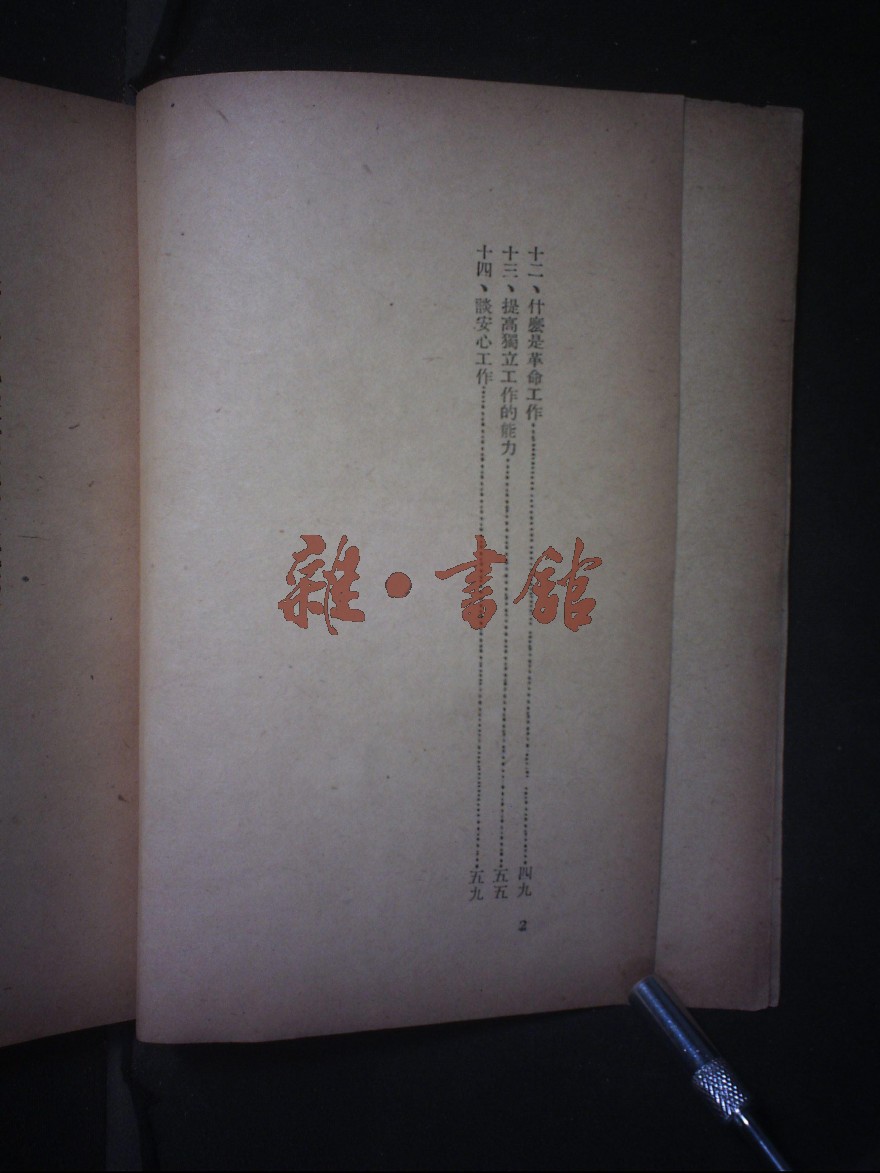 十二、什麼是革命工作……四九
十三、提高獨立工作的能力……五五
十四、談安心工作……五九
2
雜·書館